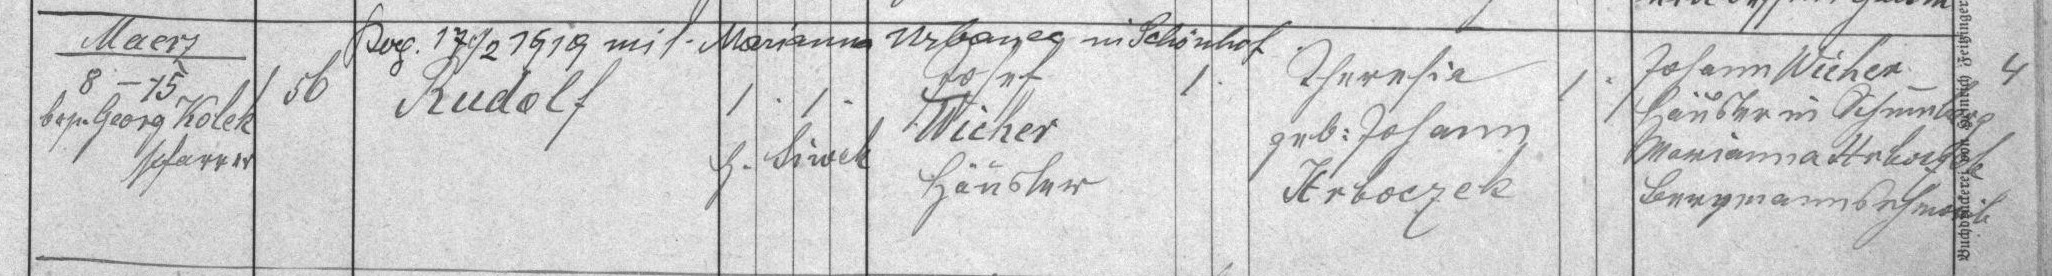 Maerz
Cop. 17/2 1919 mit Marianna Urbaniec in Schönhof
8 – 15
56
Rudolf
1. 1.
Josef
1.
Theresia
1.
Johann Wicher
4
Georg Kolek
Pfarrer
H. Siwek
Wicher
Häusler
geb: Johann
Krboczek
Häusler in Schumbarg
Marianna
Bergmanns
Buchdruckerei von Feitzinger